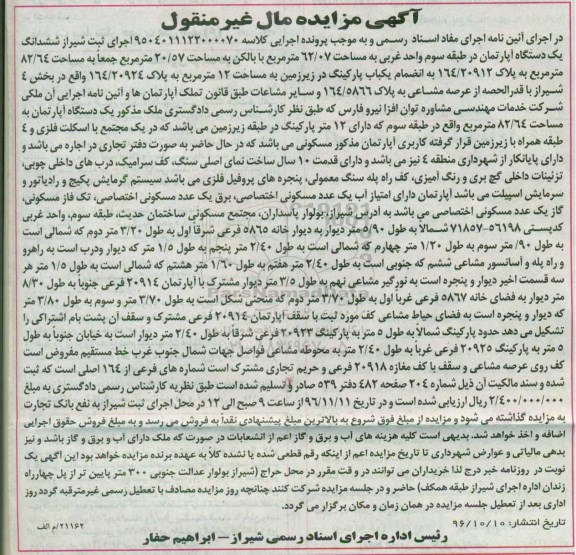 آگهی مزایده مال غیر منقول
در اجرای آئین نامه اجرای مفاد اسناد رسمی و به موجب پرونده اجرایی کلاسه ۹۵۰۴۰۱۱۱۲۲۰۰۰۰۷۰ اجرای ثبت شیراز ششدانگ
یک دستگاه آپارتمان در طبقه سوم واحد غربی به مساحت ۶۲/۰۷ مترمربع با بالکن به مساحت ۲۰/۵۷ مترمربع جمعا به مساحت ۸۲/۶۴
مترمربع به پلاک ۱۶۴/۲۰۹۱۲ به انضمام یکباب پارکینگ در زیرزمین به مساحت ۱۲ مترمربع به پلاک ۱۶۴/۲۰۹۲۴ واقع در بخش ۴
شیراز با قدرالحصه از عرصه مشاعی به پلاک ۱۶۴/۵۸۶۶ و سایر مشاعات طبق قانون تملک آپارتمان ها و آئین نامه اجرایی آن ملکی
شرکت خدمات مهندسی مشاوره توان افزا نیرو فارس که طبق نظر کارشناس رسمی دادگستری ملک مذکور یک دستگاه آپارتمان به
مساحت ۸۲/۶۴ مترمربع واقع در طبقه سوم که دارای ۱۲ متر پارکینگ در طبقه زیرزمین می باشد که در یک مجتمع با اسکلت فلزی و ۴
طبقه همراه با زیرزمین قرار گرفته کاربری آپارتمان مذکور مسکونی می باشد که در حال حاضر به صورت دفتر تجاری در اجاره می باشد و
دارای پایانکار از شهرداری منطقه ۴ نیز می باشد و دارای قدمت ۱۰ سال ساخت نمای اصلی سنگ، کف سرامیک، درب های داخلی چوبی،
تزئینات داخلی گچ بری و رنگ آمیزی، کف راه پله سنگ معمولی، پنجره های پروفیل فلزی می باشد سیستم گرمایش پکیج و رادیاتور و
سرمایش اسپیلت می باشد آپارتمان دارای امتیاز آب یک عدد مسکونی اختصاصی، برق یک عدد مسکونی اختصاصی، تک فاز مسکونی،
گاز یک عدد مسکونی اختصاصی می باشد به آدرس شیراز، بولوار پاسداران، مجتمع مسکونی ساختمان حدیث، طبقه سوم، واحد غربی
کدپستی ۵۶۱۹۸-۷۱۸۵۷ شمالا به طول ۵/۹۰ متر دیوار به دیوار خانه ۵۸۶۵ فرعی شرقا اول به طول ۳/۲۰ متر دوم که شمالی است
به طول ۹۰/ متر سوم به طول ۱/۲۰ متر چهارم که شمالی است به طول ۲/۴۰ متر پنجم به طول ۱/۵ متر که دیوار ودرب است به راهرو
و راه پله و آسانسور مشاعی ششم که جنوبی است به طول ۲/۴۰ متر هفتم به طول ۱/۶۰ متر هشتم که شمالی است به طول ۱/۵ متر هر
سه قسمت اخیر دیوار و پنجره است به نورگیر مشاعی نهم به طول ۳/۵ متر دیوار مشترک با آپارتمان ۲۰۹۱۴ فرعی جنوبا به طول ۸/۳۰
متر دیوار به فضای خانه ۵۸۶۷ فرعی غربا اول به طول ۳/۷۰ متر دوم که منحنی شکل است به طول ۳/۷۰ متر و سوم به طول ۳/۸۰ متر
که دیوار و پنجره است به فضای حیاط مشاعی کف مورد ثبت با سقف آپارتمان ۲۰۹۱۴ فرعی مشترک و سقف آن پشت بام اشتراکی را
تشکیل می دهد حدود پارکینگ شمالا به طول ۵ متر به پارکینگ ۲۰۹۲۳ فرعی شرقا به طول ۲/۴۰ متر دیوار است به خیابان جنوبا به طول
۵ متر به پارکینگ ۲۰۹۲۵ فرعی غربا به طول ۲/۴۰ متر به محوطه مشاعی فواصل جهات شمال جنوب غرب خط مستقیم مفروض است
کف روی عرصه مشاعی و سقف با کف مغازه ۲۰۹۱۸ فرعی و حریم تجاری مشترک است شماره های فرعی از ۱۶۴ اصلی است که ثبت
شده و سند مالکیت آن ذیل شماره ۲۰۴ صفحه ۴۸۲ دفتر ۵۳۹ صادر و تسلیم شده است طبق نظریه کارشناس رسمی دادگستری به مبلغ
۲/۴۰۰/۰۰۰/۰۰۰ ریال ارزیابی شده است و در تاریخ ۹۶/۱۱/۱۱ از ساعت ۹ صبح الی ۱۲ در محل اجرای ثبت شیراز به نفع بانک تجارت
به مزایده گذاشته می شود و مزایده از مبلغ فوق شروع به بالاترین مبلغ پیشنهادی نقدا به فروش می رسد و به مبلغ فروش حقوق اجرایی
اضافه و اخذ خواهد شد. بدیهی است کلیه هزینه های آب و برق و گاز اعم از انشعابات در صورت که ملک دارای آب و برق و گاز باشد و نیز
بدهی مالیاتی و عوارض شهرداری تا تاریخ مزایده اعم از اینکه رقم قطعی شده یا نشده کلا به عهده برنده مزایده خواهد بود این آگهی یک
نوبت در روزنامه خبر درج لذا خریداران می توانند در وقت مقرر در محل حراج (شیراز بولوار عدالت جنوبی ۳۰۰ متر پایین تر از پل چهارراه
زندان اداره اجرای شیراز طبقه همکف) حاضر و در جلسه مزایده شرکت کنند چنانچه روز مزایده مصادف با تعطیل رسمی غیرمترقبه گردد روز
اداری بعد از تعطیل جلسه مزایده در همان زمان و مکان برگزار می گردد.
تاریخ انتشار: ۹۶/۱۰/۱۰
۲۱۱۶۲/م الف
رئیس اداره اجرای اسناد رسمی شیراز – ابراهیم حفار